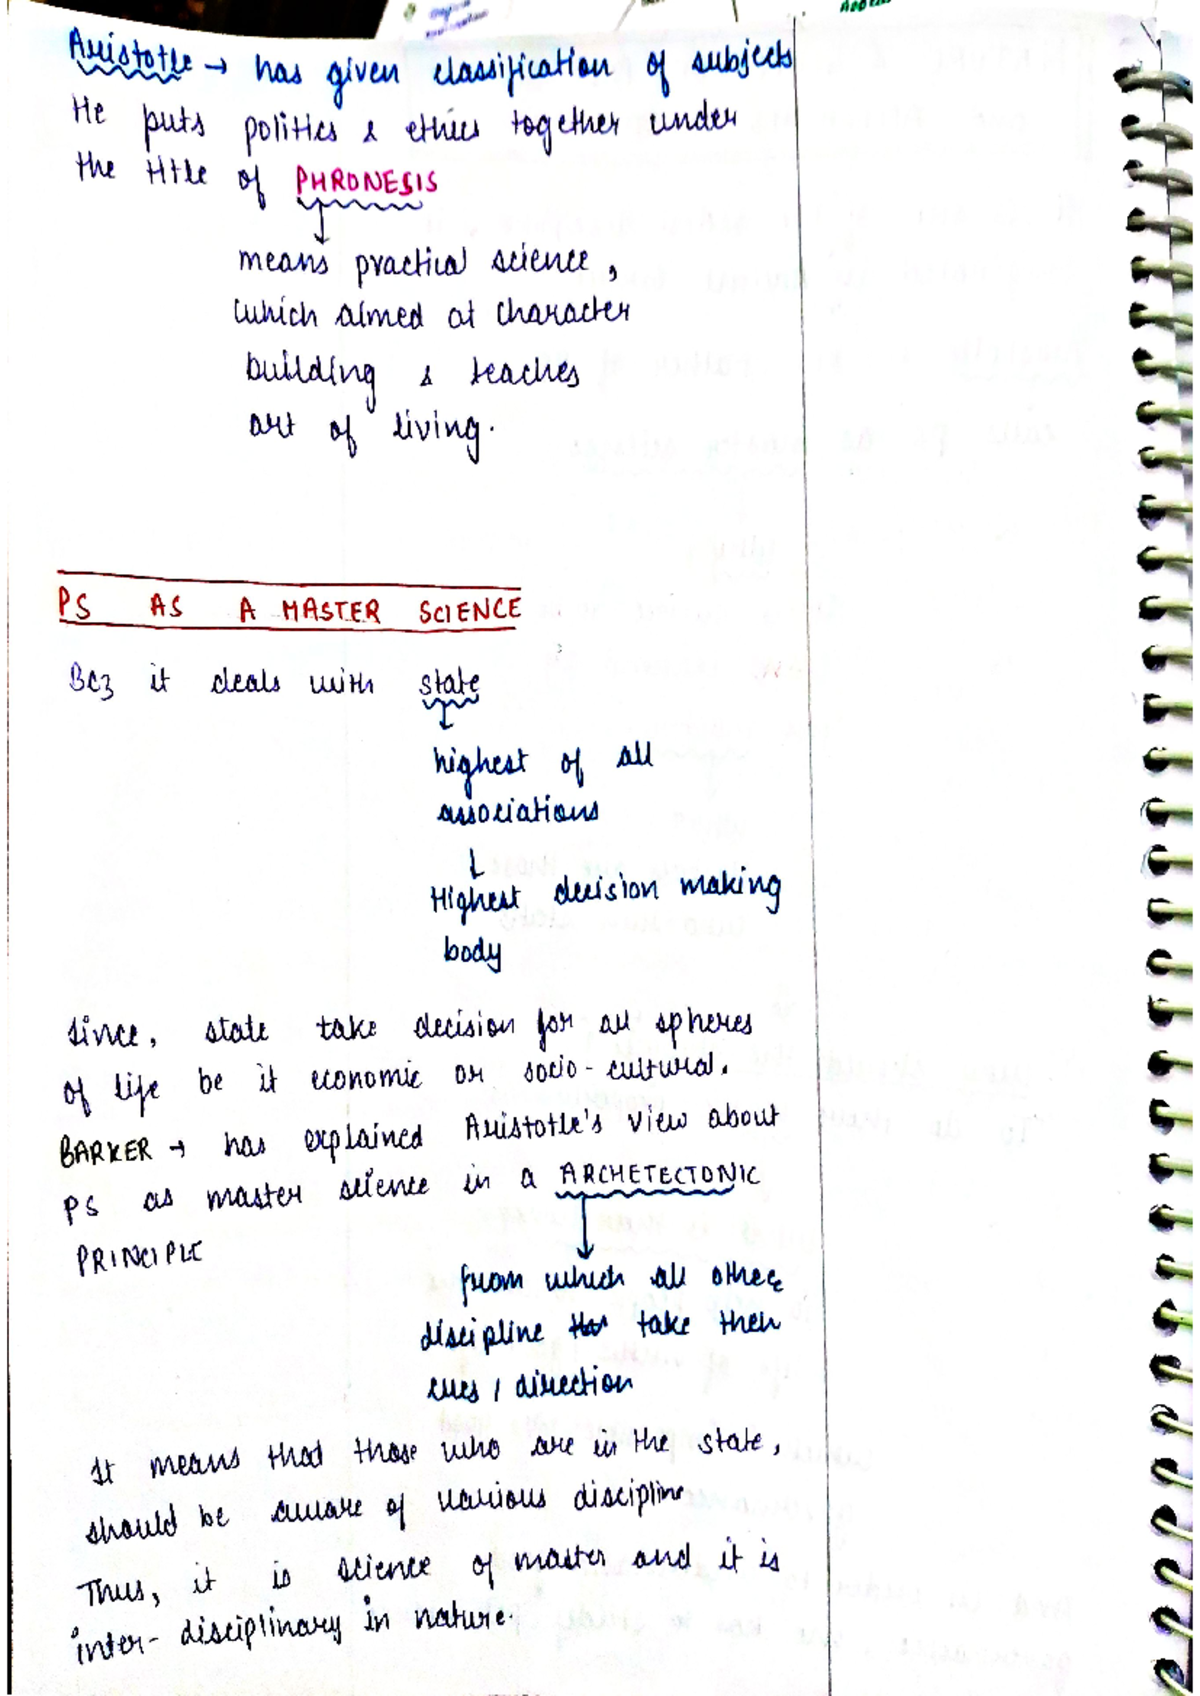 Aristotle → has given classification of subjects
He puts politics & ethics together under
the title of PHRONESIS
↓
means practical science,
which aimed at character
building & teaches
art of living.
PS AS A MASTER SCIENCE
Bcz it deals with state
↓
highest of all
associations
↓
Highest decision making
body
Since, state take decision for all spheres
of life be it economic or socio-cultural.
BARKER → has explained Aristotle's view about
PS as master science in a ARCHETECTONIC
PRINCIPLE
↓
from which all other
discipline take their
cues / direction
It means that those who are in the state,
should be aware of various discipline
Thus, it is science of master and it is
inter-disciplinary in nature.